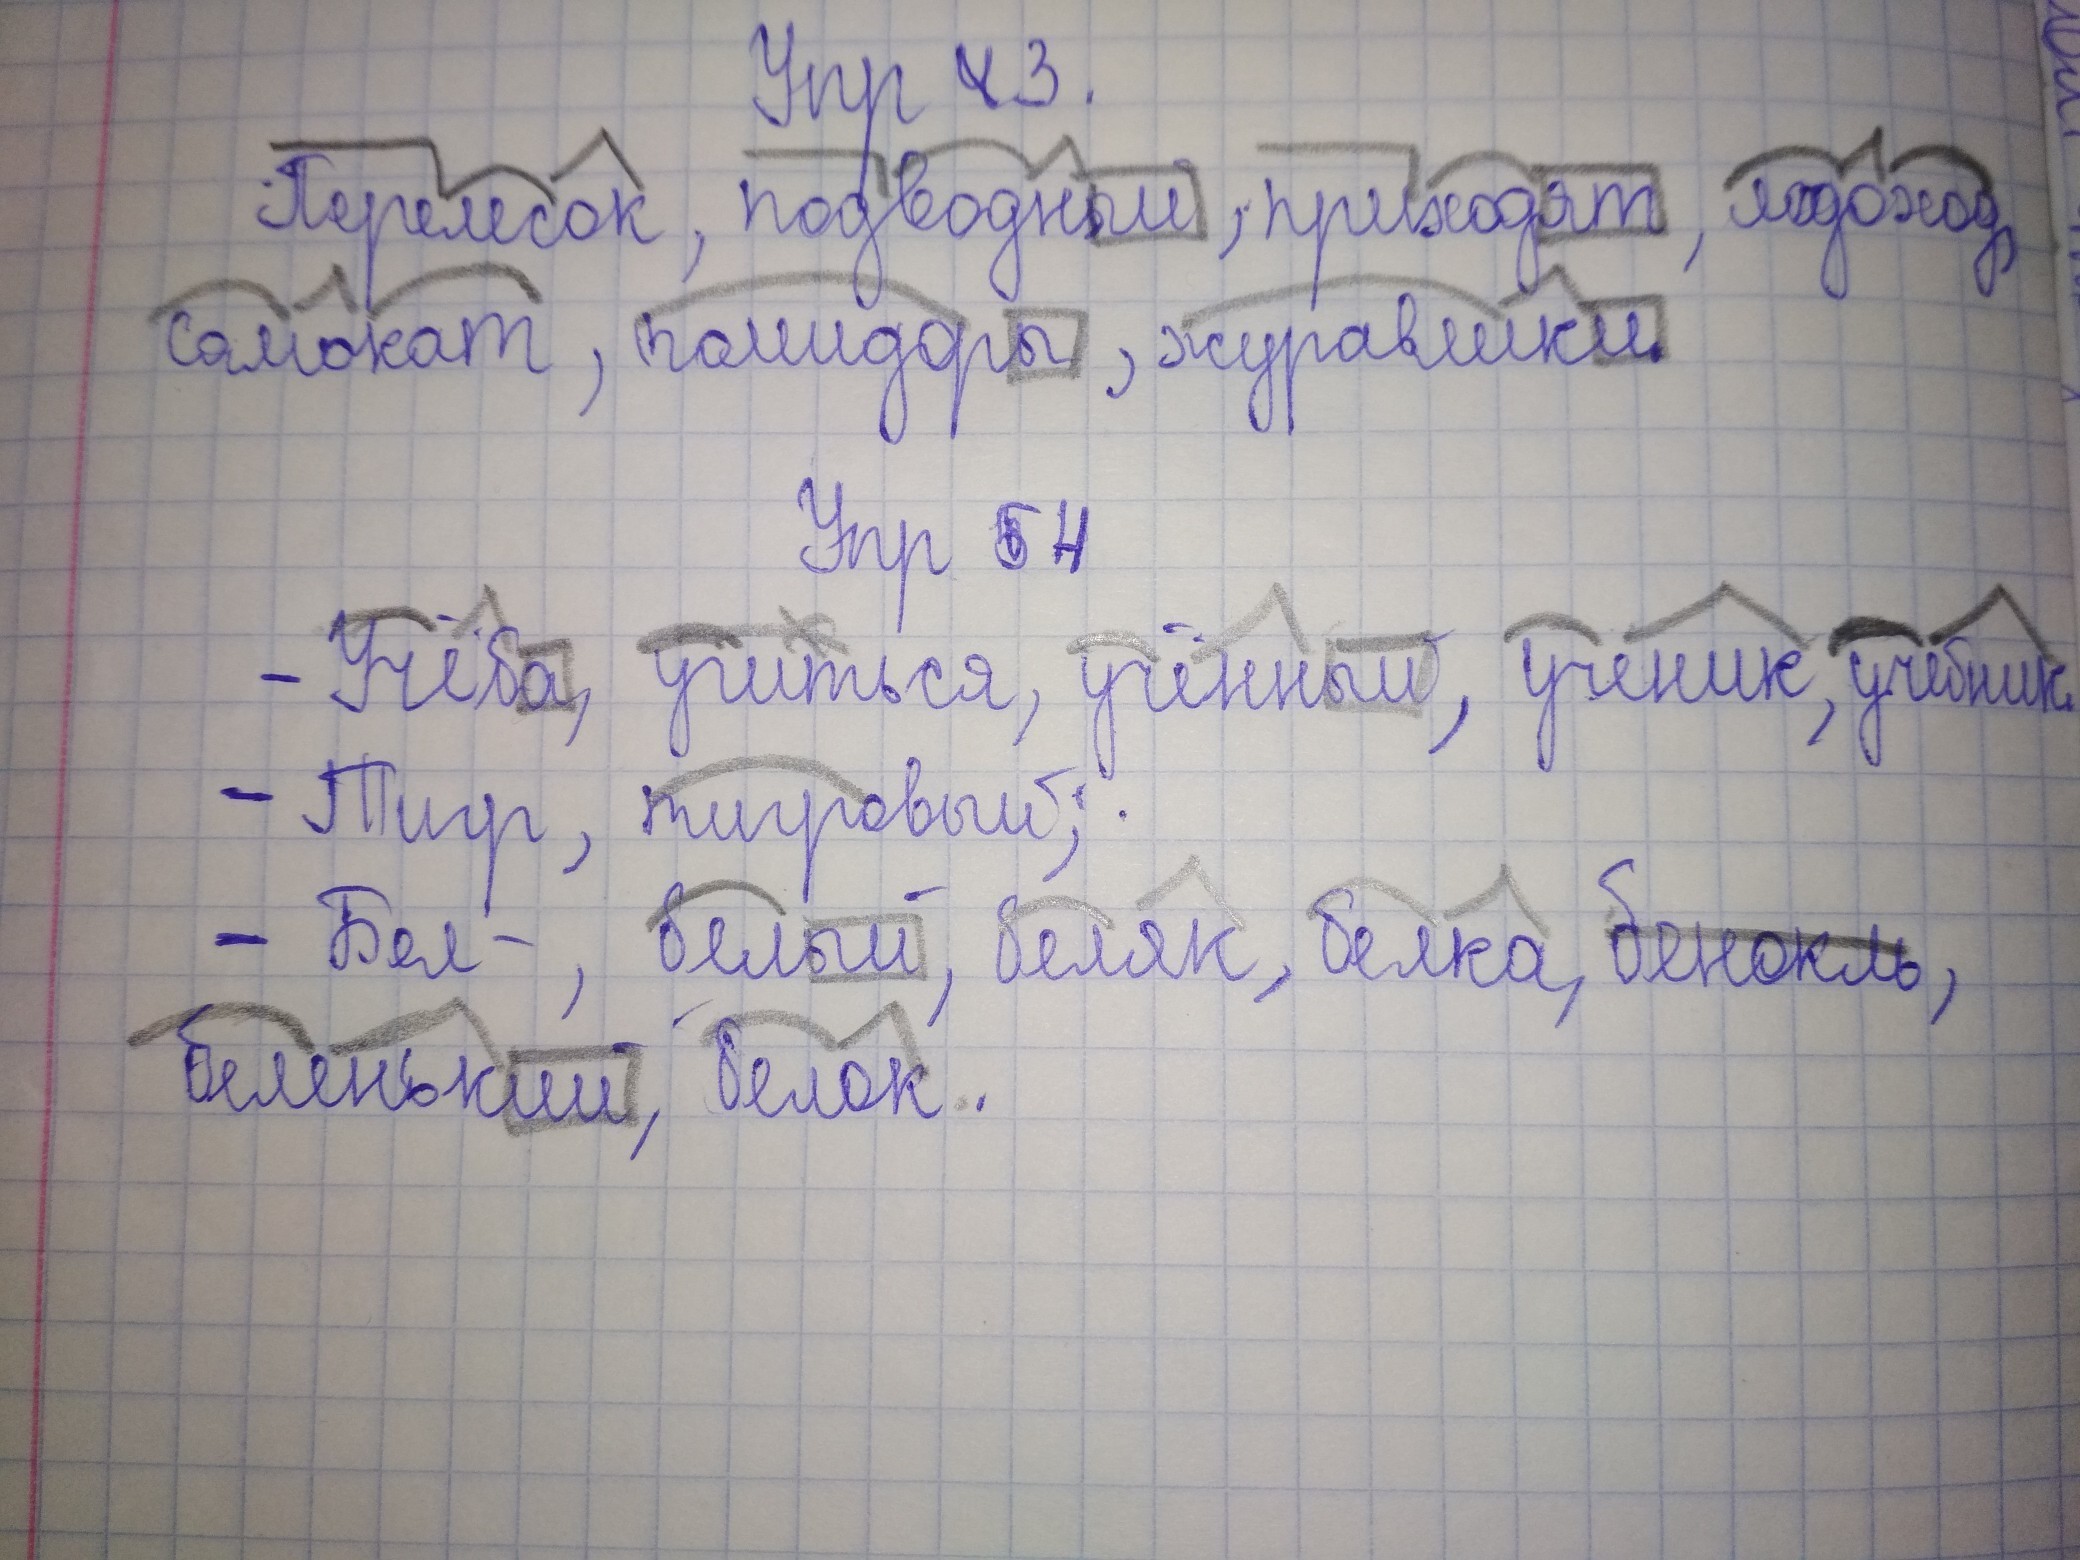 Упр 43.
Перелесок, подводный, приходят, ледоход,
самокат, помидоры, журавлики.
Упр 54
- Учёба, учиться, учённый, ученик, учебник.
- Тигр, тигровый;
- Бел-, белый, беляк, белка, бенокль,
беленький, белок.